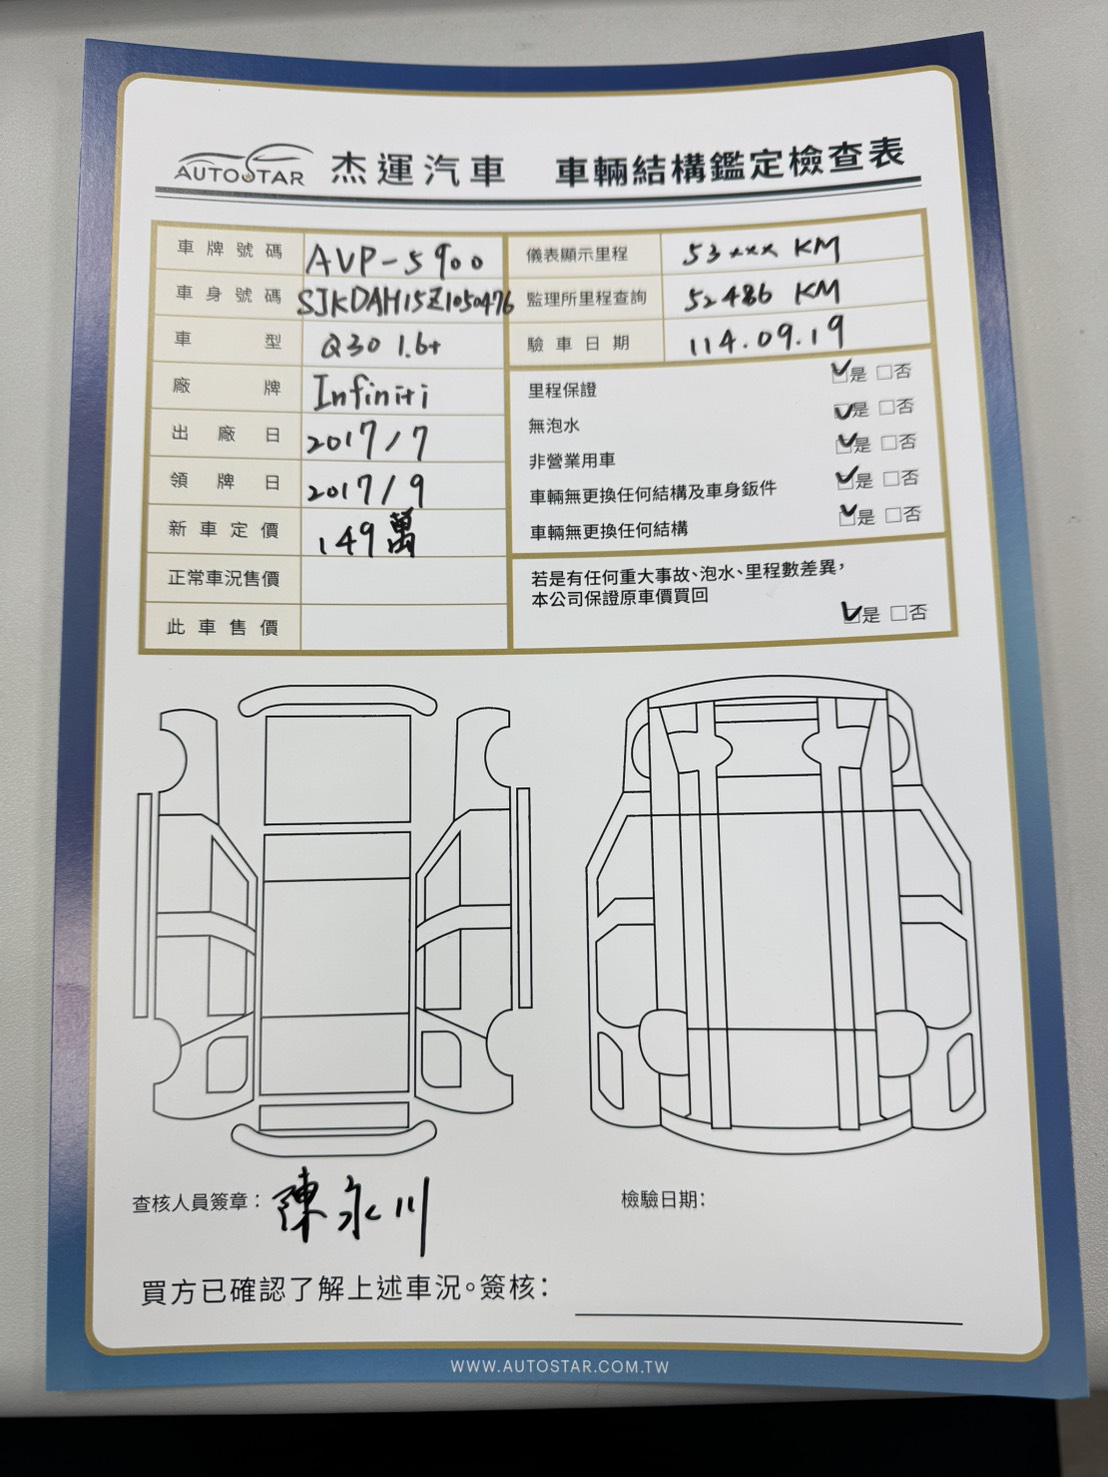 AUTOSTAR 杰運汽車 車輛結構鑑定檢查表
車牌號碼 AVP-5900
車身號碼 SJKDAH15Z1050476
車型 Q30 1.6t
廠牌 Infiniti
出廠日 2017/7
領牌日 2017/9
新車定價 149萬
正常車況售價
此車售價
儀表顯示里程 53xxx KM
監理所里程查詢 52486 KM
驗車日期 114.09.19
里程保證 ☑是 □否
無泡水 ☑是 □否
非營業用車 ☑是 □否
車輛無更換任何結構及車身鈑件 ☑是 □否
車輛無更換任何結構 ☑是 □否
若是有任何重大事故、泡水、里程數差異，
本公司保證原車價買回
☑是 □否
查核人員簽章： 陳永川
檢驗日期：
買方已確認了解上述車況。簽核：
WWW.AUTOSTAR.COM.TW